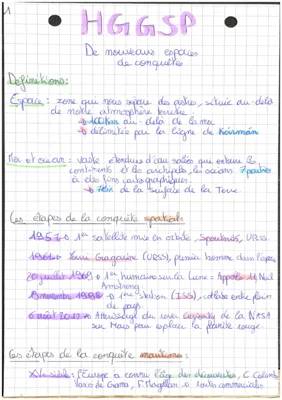 1
HGGSP
De nouveaux espaces
de conquête
Définitions:
Espace: zone qui nous sépare des astres, située au-delà
de notre atmosphère terrestre
100km au-delà de la mer
délimitée par la ligne de Kármán
Mer et océan: vaste étendue d'eau salée qui entoure les
continents et les archipels, les océans
à des fins cartographiques
de la surface de la Terre
Les étapes de la conquête spatiale:
1957 → 1er satellite mis en orbite, Spoutnik, URSS
1961 → Youri Gagarine (URSS), premier homme dans l'espace
20 juillet 1969 → 1er humain sur la Lune: Appolo 11, Neil
Armstrong
novembre 1998 → 1ère station (ISS), collabo entre plein
de pays
6 août 2012 → Atterrissage du rover Curiosity de la NASA
sur Mars pour explorer la planète rouge
Les étapes de la conquête maritime:
XVe siècle: l'Europe a connu l'âge des découvertes, C. Colomb
Vasco de Gama, F. Magellan → routes commerciales